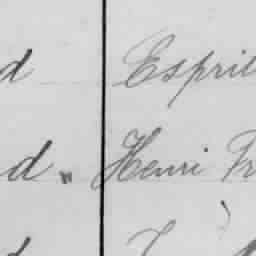 d Esprit
d " Henri Fr
d